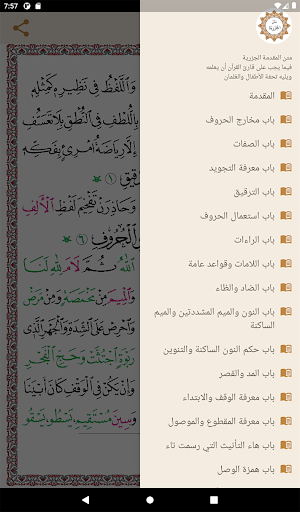 7:57
متن المقدمة الجزرية
فيما يجب على قارئ القرآن أن يعلمه
ويليه تحفة الأطفال والغلمان
المقدمة
باب مخارج الحروف
باب الصفات
باب معرفة التجويد
باب الترقيق
باب استعمال الحروف
باب الراءات
باب اللامات وقواعد عامة
باب الضاد والظاء
باب النون والميم المشددتين والميم
الساكنة
باب حكم النون الساكنة والتنوين
باب المد والقصر
باب معرفة الوقف والابتداء
باب معرفة المقطوع والموصول
باب هاء التأنيث التي رسمت تاء
باب همزة الوصل
وَاللَّفْظُ فِي نَظِيرِهِ كَمِثْلِهِ
بِاللُّطْفِ فِي النُّطْقِ بِلَا تَعَسُّفِ
إِلَّا رِيَاضَةُ امْرِئٍ بِفَكِّهِ
وَحَاذِرَنْ تَفْخِيمَ لَفْظِ الْأَلِفِ
اللَّهُ ثُمَّ لَامَ لِلَّهِ لَنَا
وَالْمِيمَ مِنْ مَخْمَصَةٍ وَمِنْ مَرَضْ
وَاحْرِصْ عَلَى الشِّدَّةِ وَالْجَهْرِ الَّذِي
رَبْوَةٍ اجْتُثَّتْ وَحَجِّ الْفَجْرِ
وَإِنْ يَكُنْ فِي الْوَقْفِ كَانَ أَبْيَنَا
وَسِينَ مُسْتَقِيمِ يَسْطُو يَسْقُو